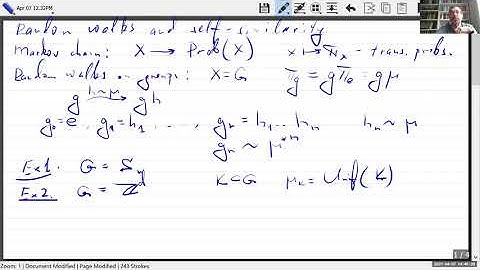 Apr 07 12:33PM
Random walks and self-similarity
Markov chain: X → Prob(X) x ↦ π_x - trans. probs.
Random walks on groups: X=G π_g = gπ_e = gμ
g —h~μ→ gh
g₀=e, g₁=h₁, ..., gₙ = h₁...hₙ hₙ ~ μ
gₙ ~ μ*ⁿ
Ex1. G =
Ex2. G = ℤᵈ K⊂G μ_K = Unif(K)
Zoom: 1 | Document Modified | Page Modified | 243 Strokes